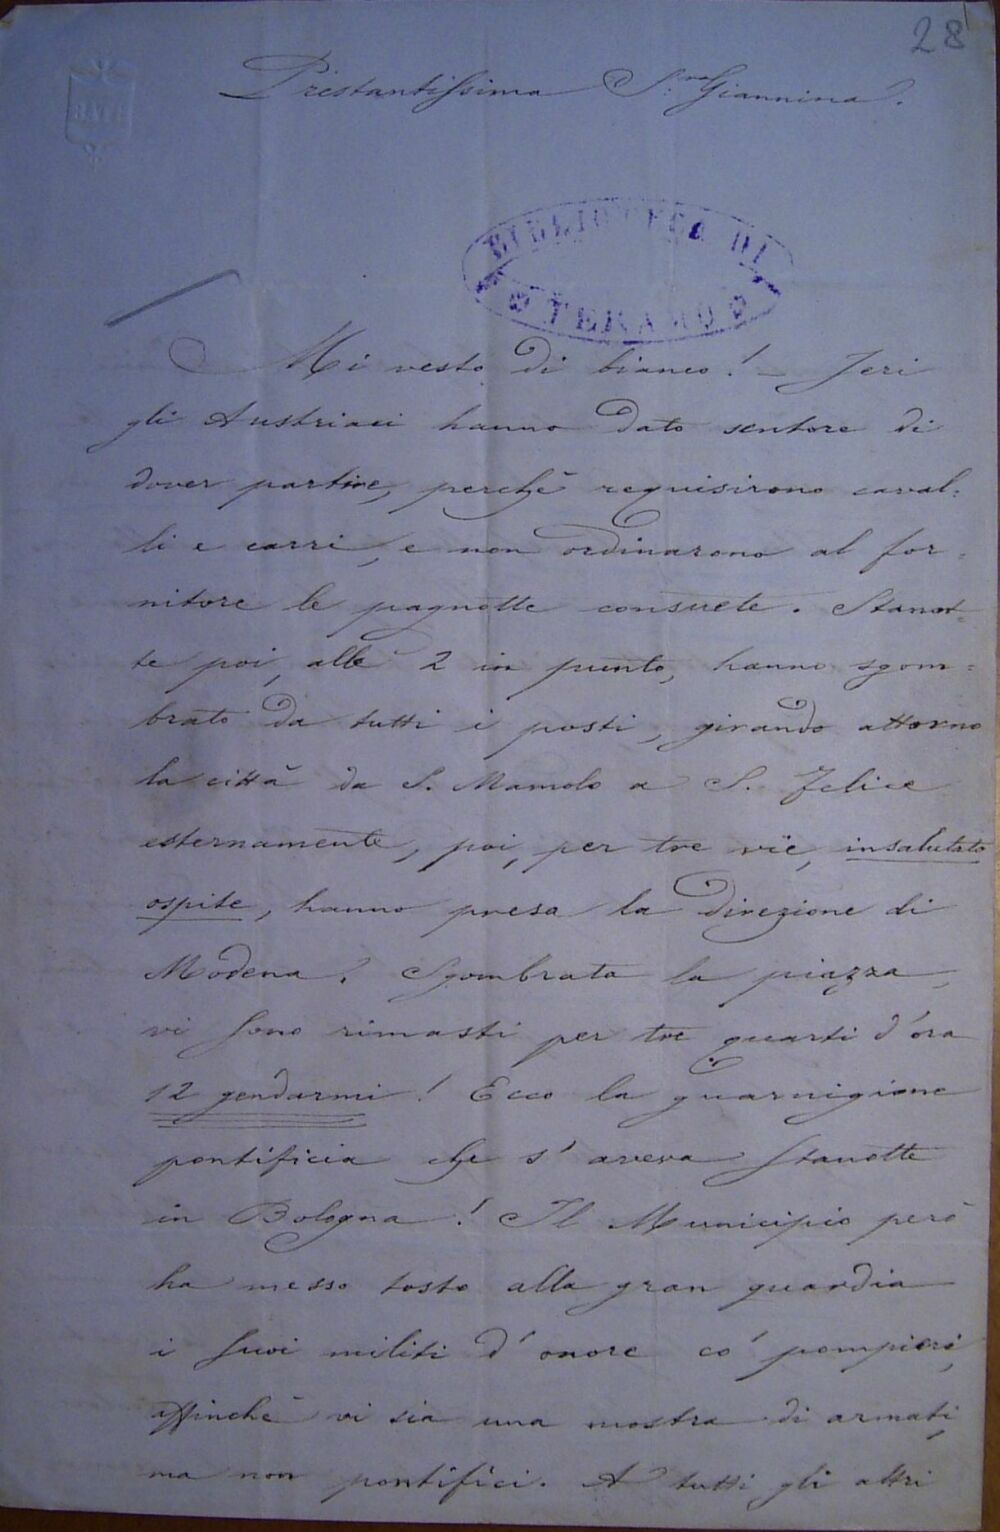 28
BATH
Prestantissima S.ra Giannina.
BIBLIOTECA DI
TERAMO
Mi vesto di bianco! - Jeri
gli Austriaci hanno dato sentore di
dover partire, perchè requisirono caval=
li e carri, e non ordinarono al for=
nitore le pagnotte consuete. Stanot=
te poi, alle 2 in punto, hanno sgom=
brato da tutti i posti, girando attorno
la città da S. Mamolo a S. Felice
esternamente, poi, per tre vie, insalutato
ospite, hanno presa la direzione di
Modena. Sgombrata la piazza,
vi sono rimasti per tre quarti d'ora
12 gendarmi! Ecco la guarnigione
pontificia che s'aveva stanotte
in Bologna! Il Municipio però
ha messo tosto alla gran guardia
i suoi militi d'onore co' pompieri,
affinchè vi sia una mostra di armati,
ma non pontifici. A tutti gli altri